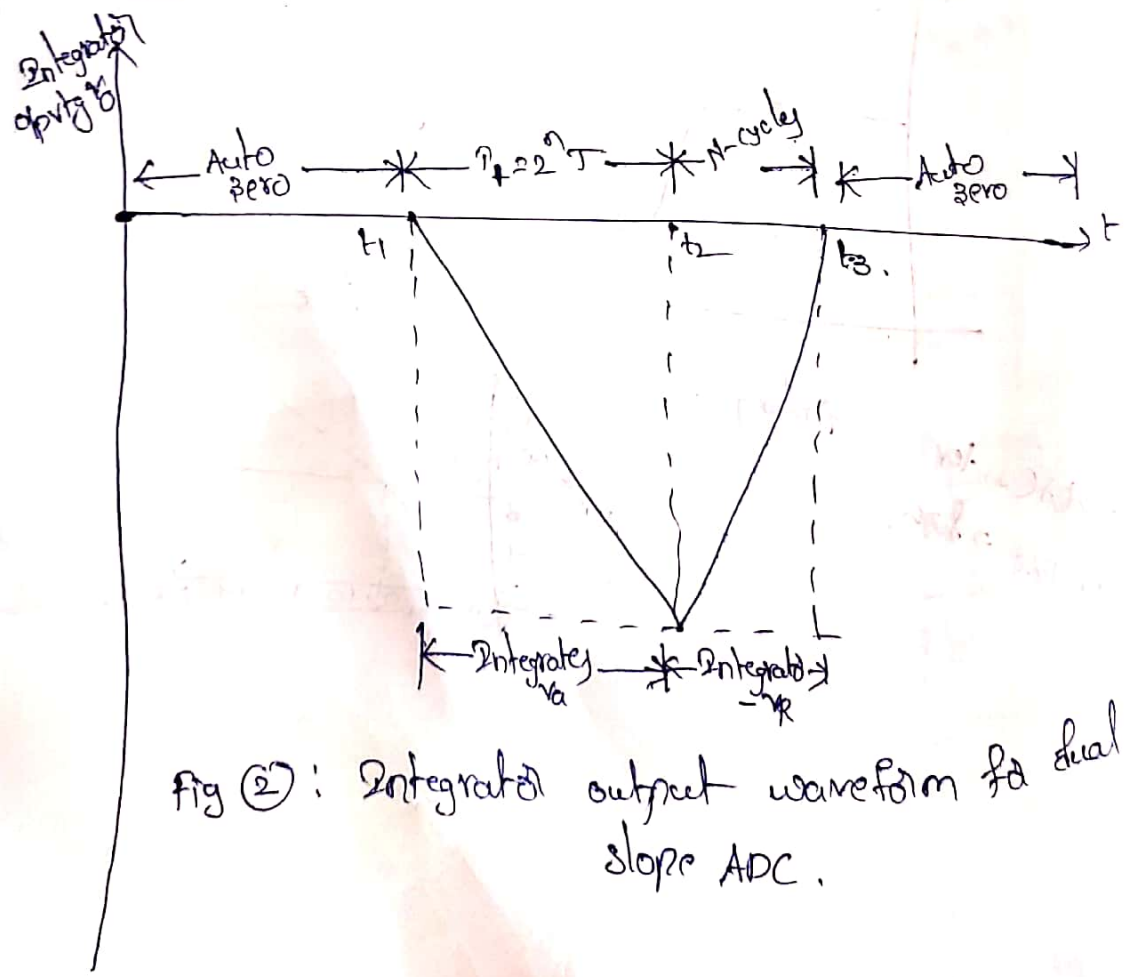 Integrator
o/p vtg vo
Auto
zero
T1 = 2^n T
N-cycles
Auto
zero
t1
t2
t3.
t
Integrates
Va
Integrator
-VR
Fig ②: Integrator output waveform for dual
slope ADC.